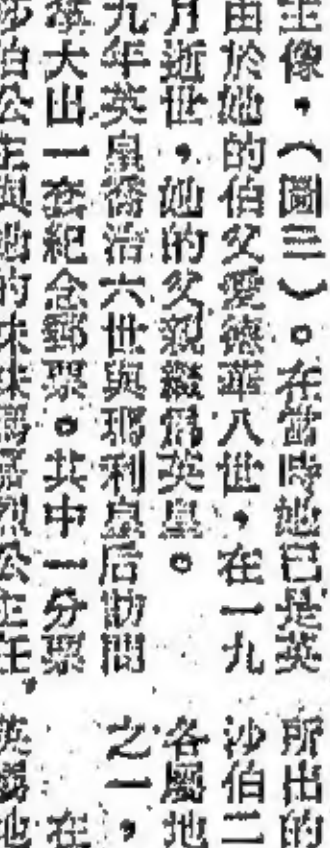 主像,(圖三)。在當時她已是英
由於她的伯父愛德華八世,在一九
月逝世,她的父親繼爲英皇。
九年英皇喬治六世與瑪利皇后訪問
拿大出一套紀念郵票。共中一分票
公主與她的妹妹瑪嘉烈公主在
所出的
沙伯二
各屬地
之一,
在
英屬地